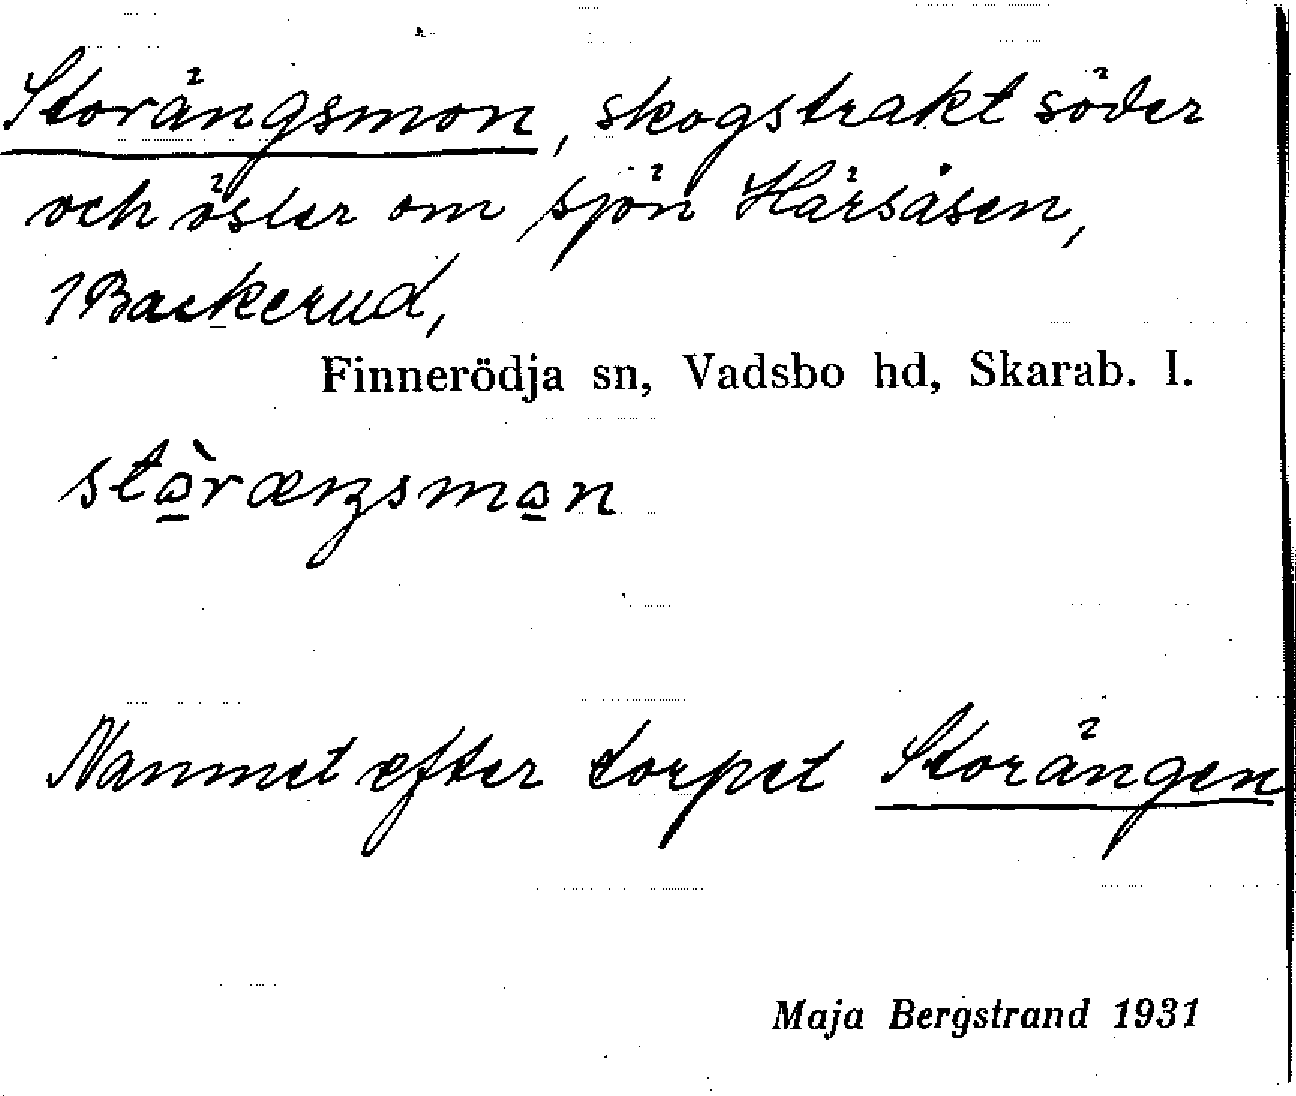 Storängsmon, skogstrakt söder
och öster om sjön Härsåsen,
1 Backerud,
Finnerödja sn, Vadsbo hd, Skarab. l.
Namnet efter torpet Storängen
Maja Bergstrand 1931